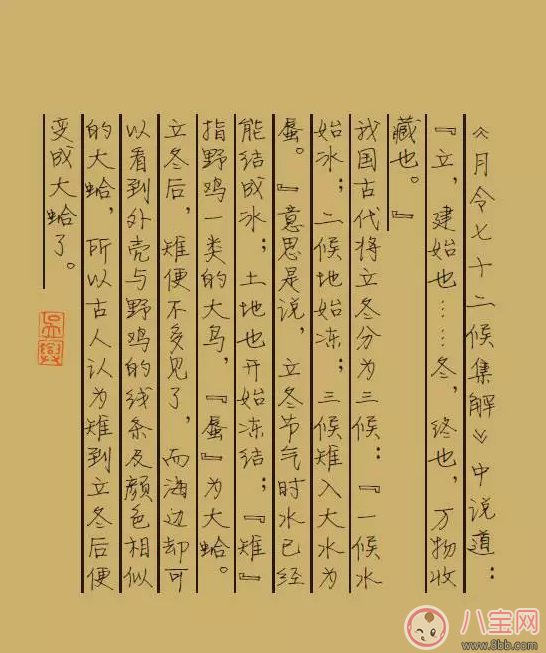 《月令七十二候集解》中说道：
『立，建始也……冬，终也，万物收
藏也。』
我国古代将立冬分为三候：『一候水
始冰；二候地始冻；三候雉入大水为
蜃。』意思是说，立冬节气时水已经
能结成冰；土地也开始冻结；『雉』
指野鸡一类的大鸟，『蜃』为大蛤。
立冬后，雉便不多见了，而海边却可
以看到外壳与野鸡的线条及颜色相似
的大蛤，所以古人认为雉到立冬后便
变成大蛤了。
八宝网
www.8bb.com